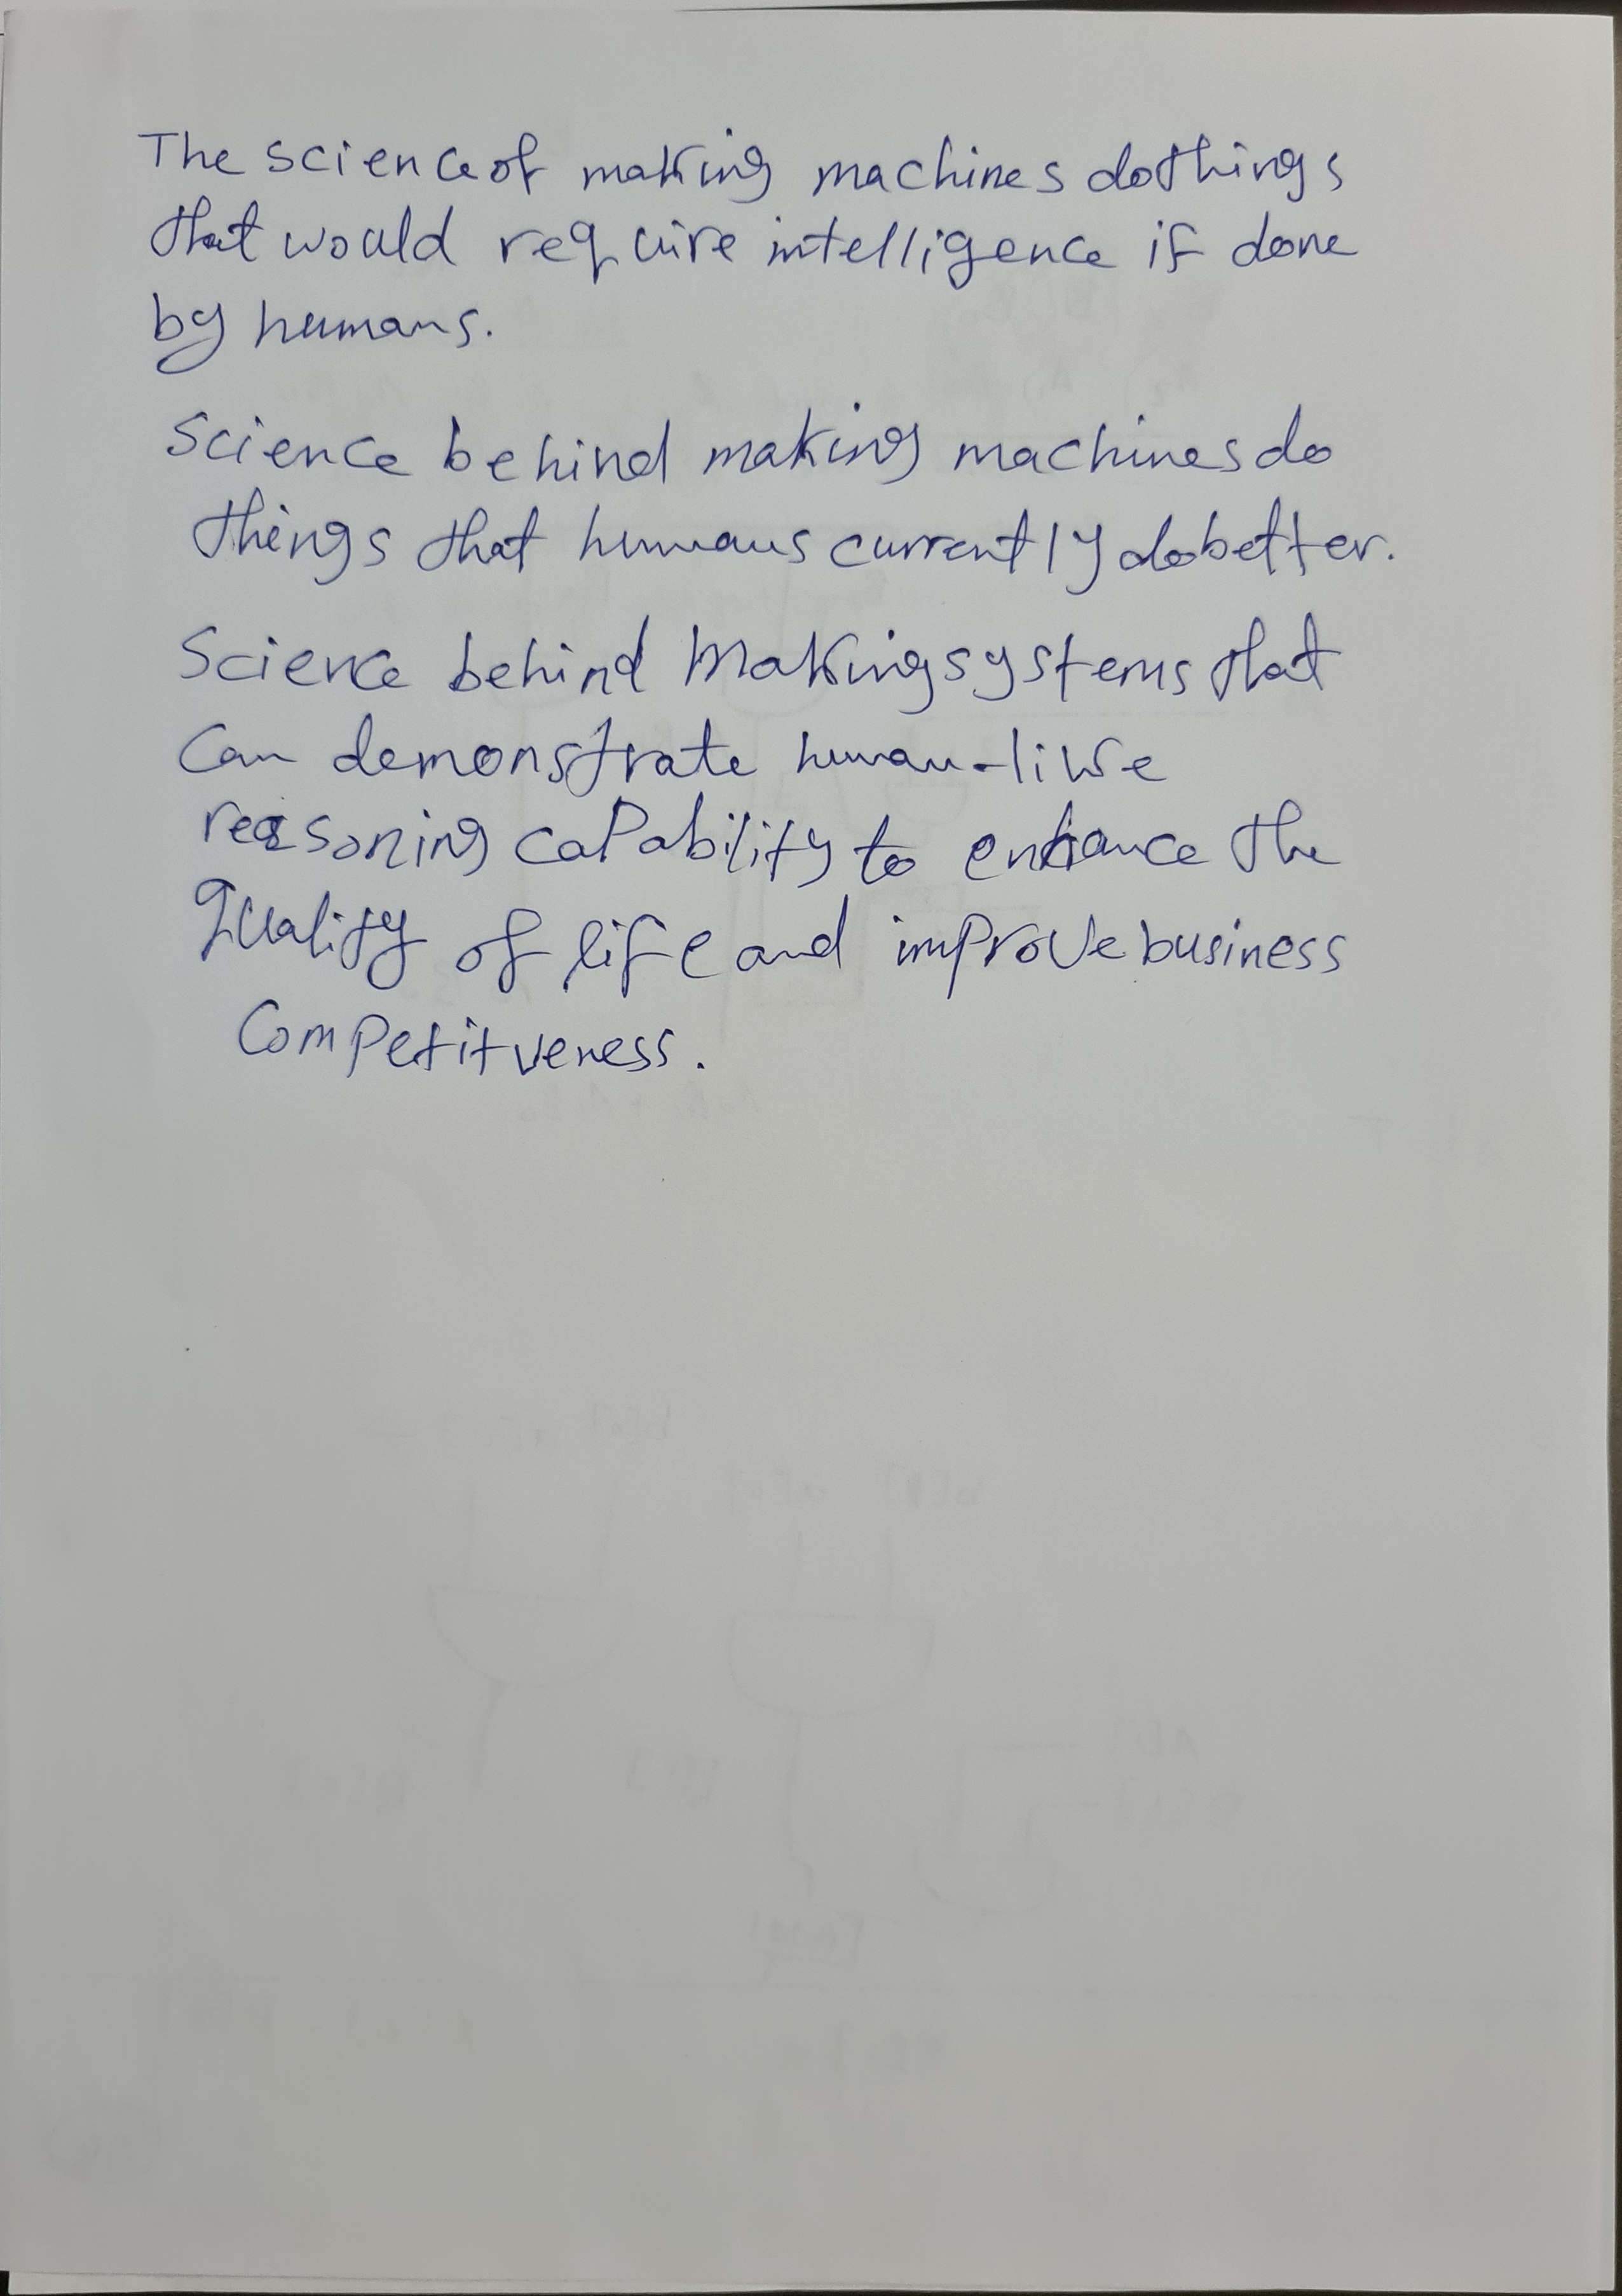 The science of making machines do things
that would require intelligence if done
by humans.
Science behind making machines do
things that humans currently do better.
Science behind Making systems that
Can demonstrate human-like
reasoning capability to enhance the
Quality of life and improve business
Competitveness.